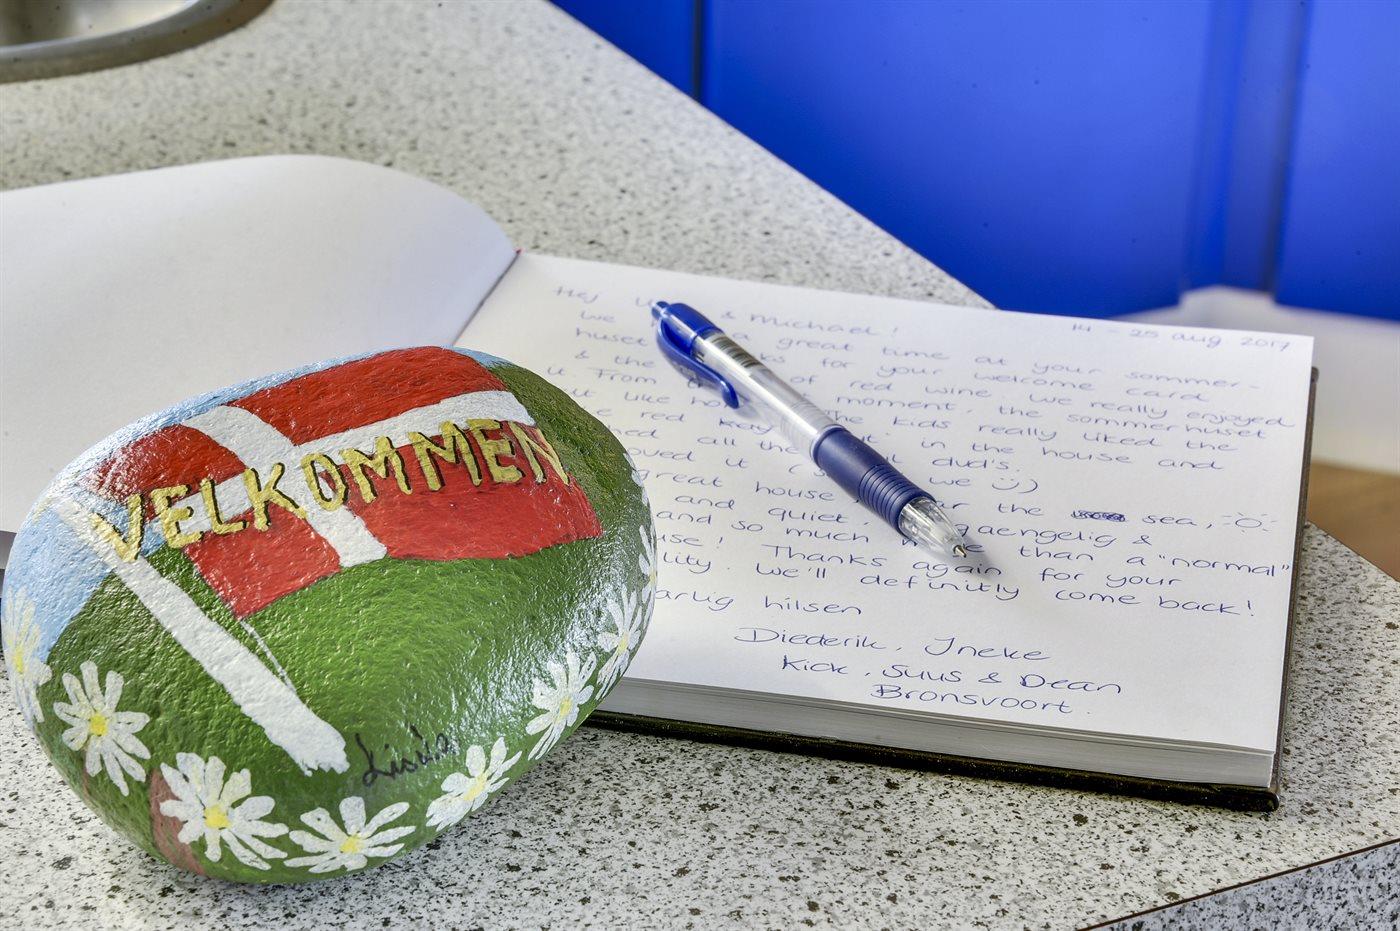 VELKOMMEN
Lisúla
Hej & Michael! 14 - 25 aug 2017
We a great time at your sommer-
huset for your welcome card
& the of red wine. We really enjoyed
u From moment, the sommerhuset
like The kids really liked the
red in the house and
all the dvd's.
loved it we ☺)
great house the sea,
and quiet, gaengelig &
and so much than a "normal"
Thanks again for your
We'll definitly come back!
hilsen
Diederik, Ineke
Kick, Suus & Dean
Bronsvoort.